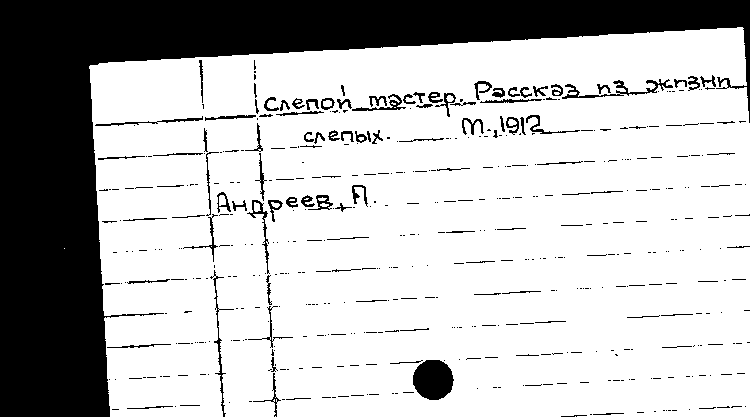 Слепой мастер. Рассказ из жизни
слепых. М., 1912
Андреев, А.